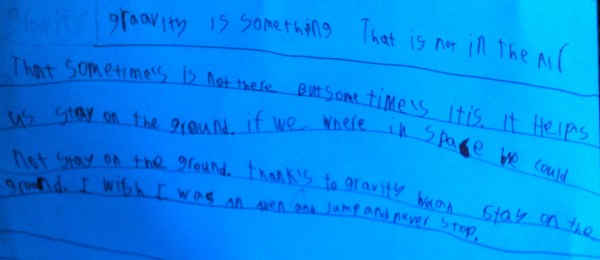 gravity graavity is something That is not in the air
That sometimes is not there But some times It is. It Helps
us stay on the ground. if we where in space we could
not stay on the ground. thank's to gravity stay on the
ground. I wish I was an and Jump and never stop.